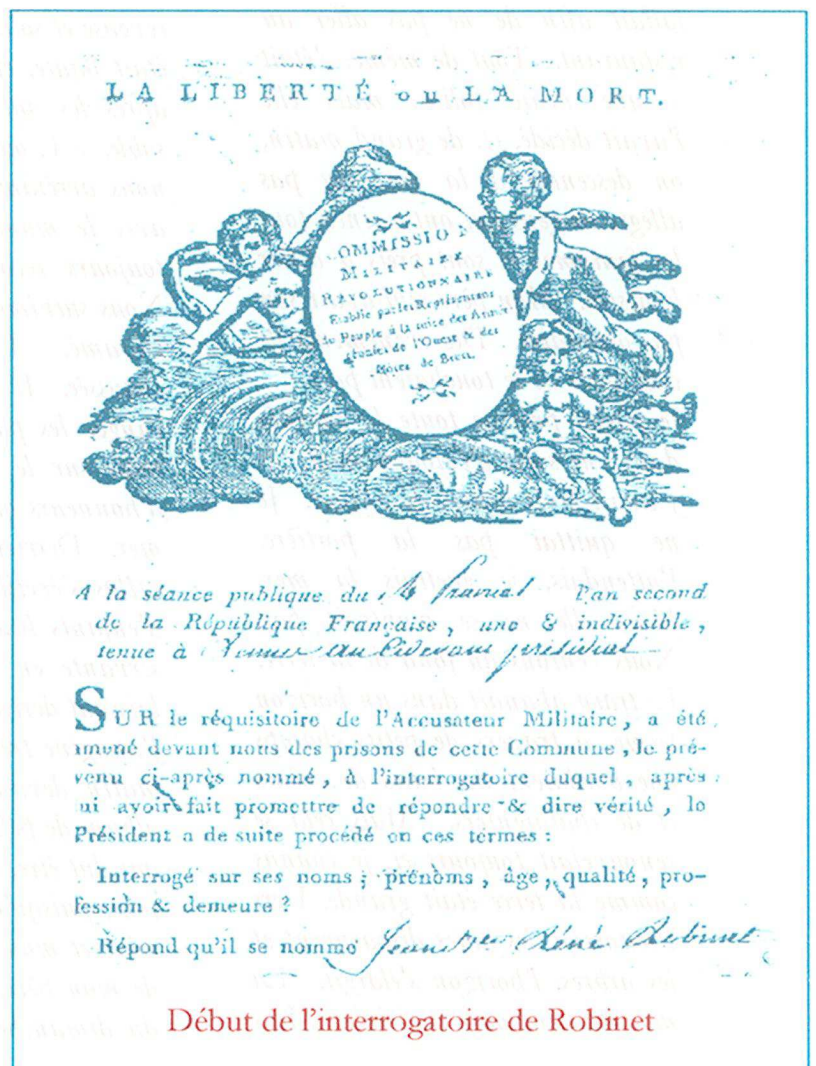 LA LIBERTÉ ou LA MORT.
COMMISSION
MILITAIRE
RÉVOLUTIONNAIRE
Établie par les Représentans
du Peuple à la suite des Armées
réunies de l'Ouest & des
Côtes de Brest.
A la séance publique du 4 Prairial l'an second
de la République Française, une & indivisible,
tenue à Rennes au Cidevant présidial
SUR le réquisitoire de l'Accusateur Militaire, a été
amené devant nous des prisons de cette Commune, le pré-
venu ci-après nommé, à l'interrogatoire duquel, après
lui avoir fait promettre de répondre & dire vérité, le
Président a de suite procédé en ces termes :
Interrogé sur ses noms ; prénoms, âge, qualité, pro-
fession & demeure ?
Répond qu'il se nomme Jean Réné Robinet
Début de l'interrogatoire de Robinet